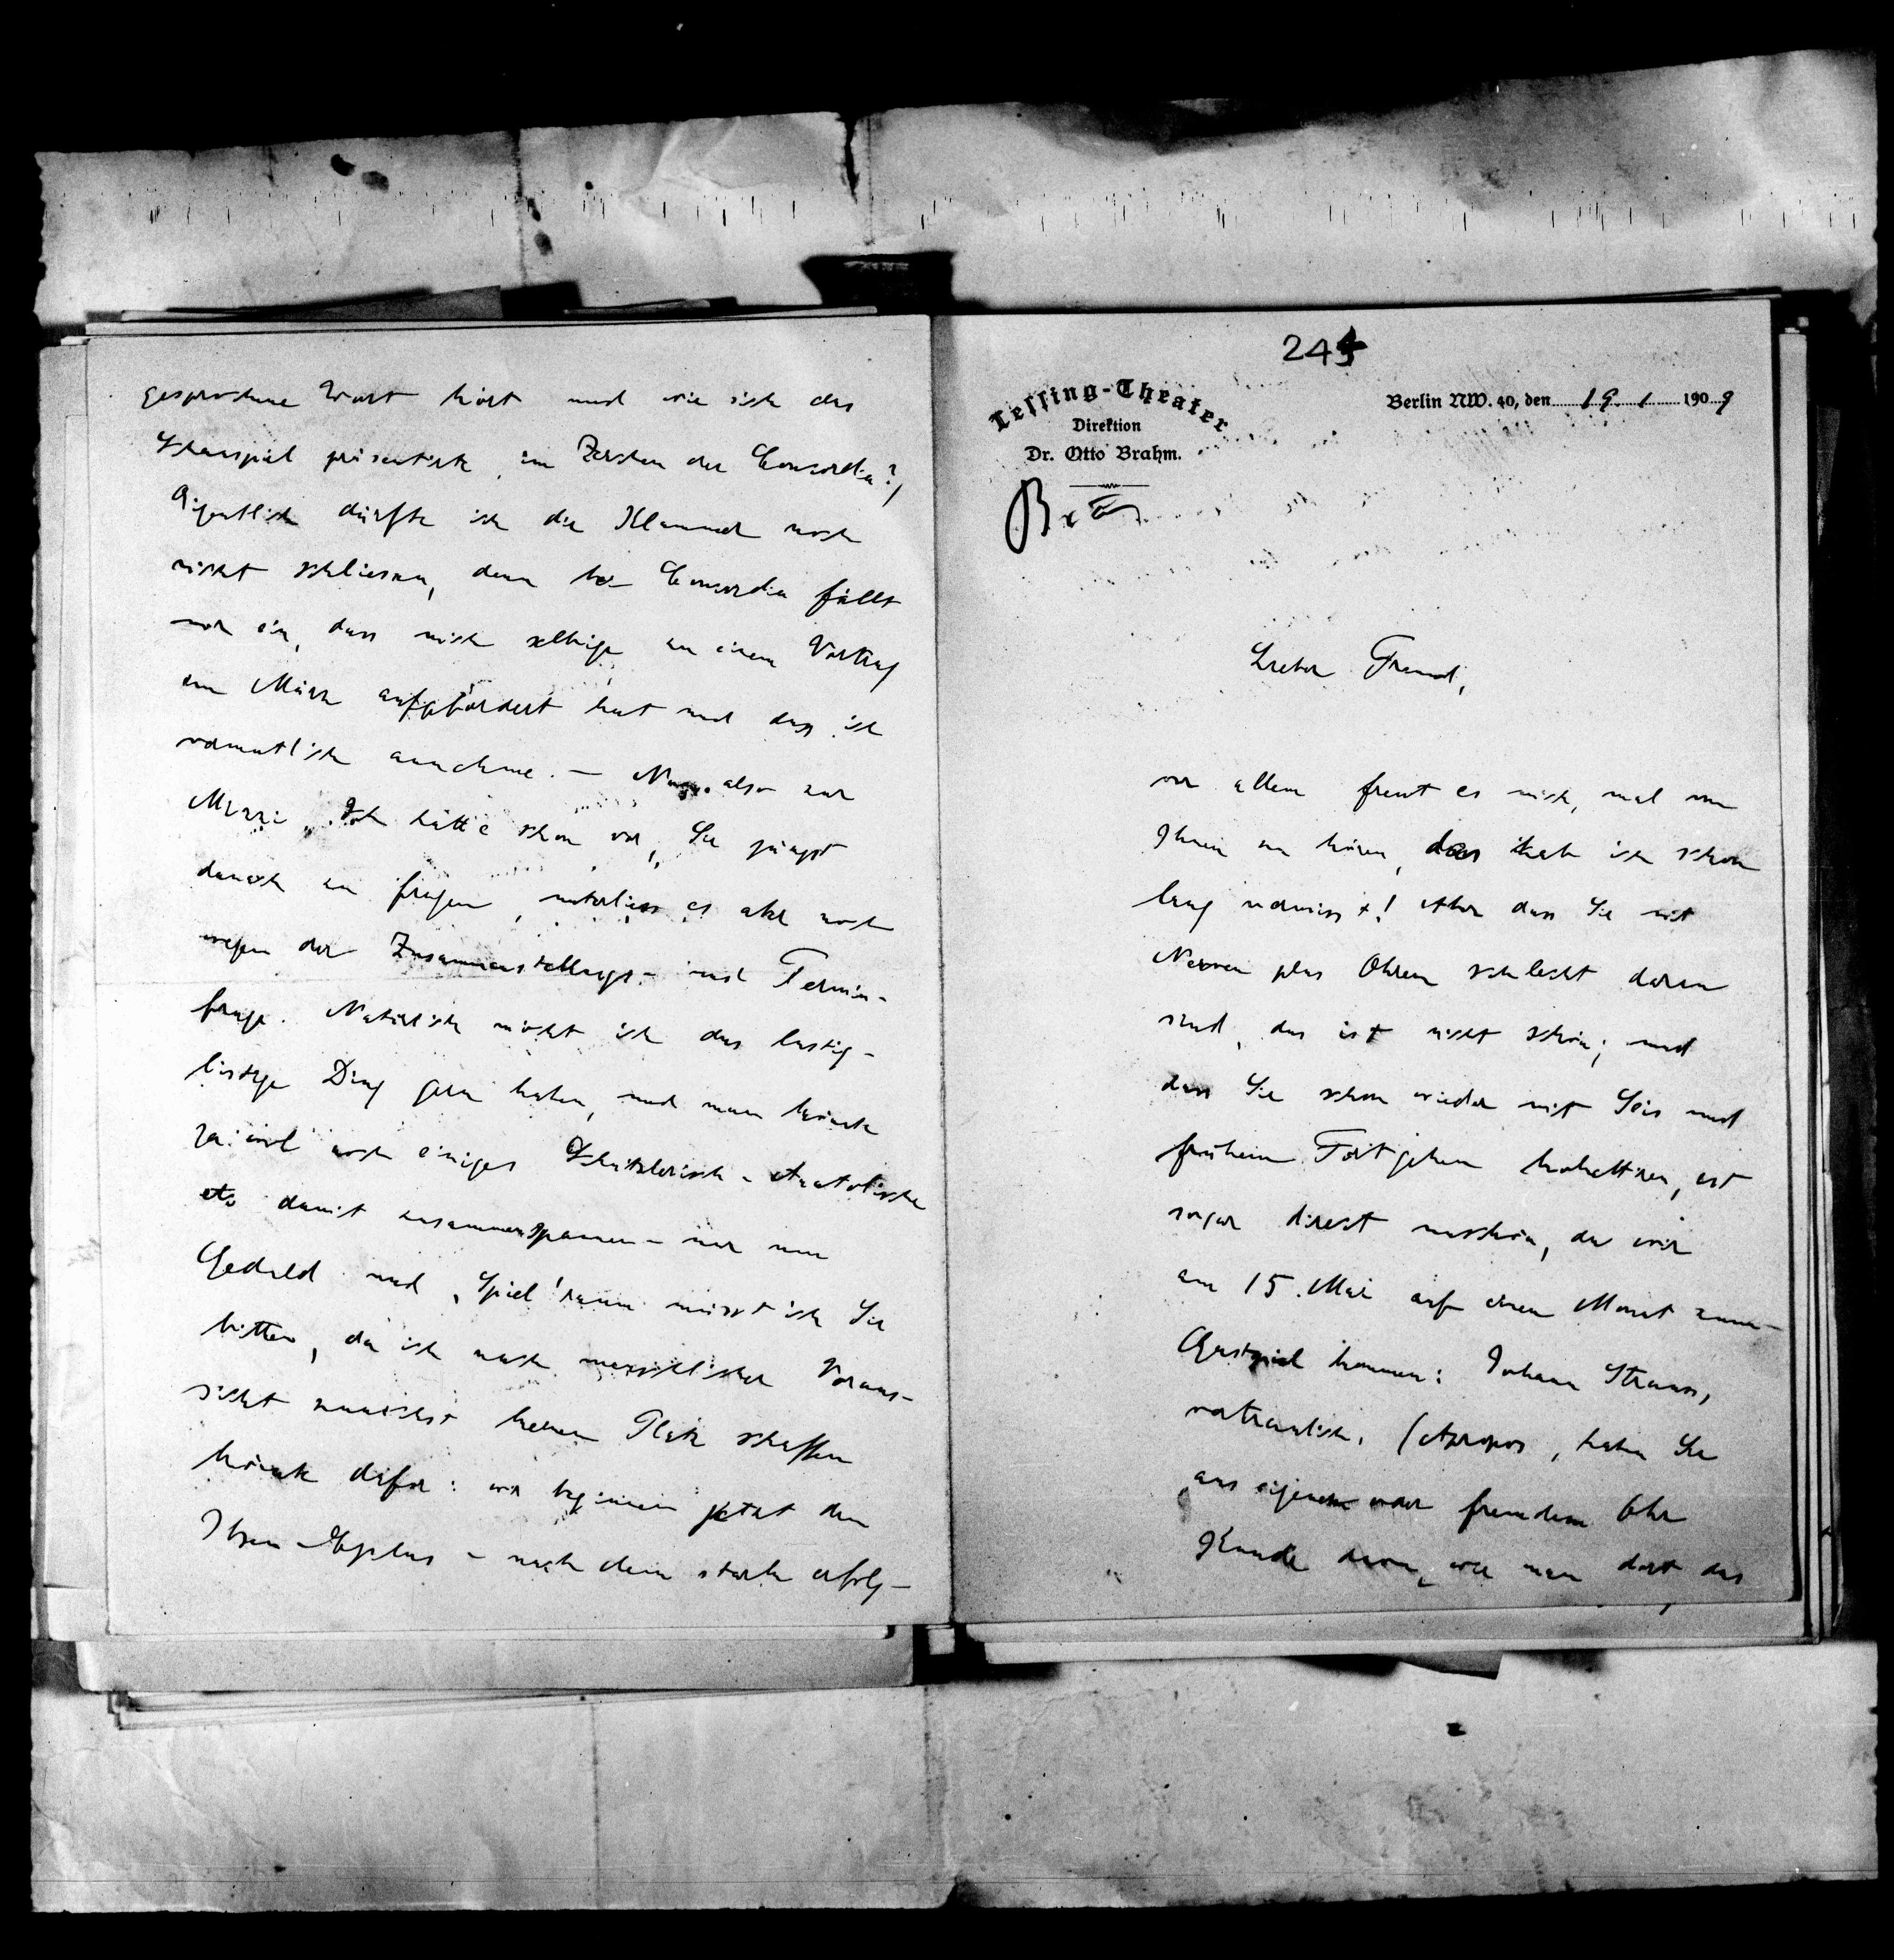 244
Lessing-Theater
Direktion
Dr. Otto Brahm.
Berlin NW. 40, den 19. 1. 1909
Lieber Freund,
vor allem freut es mich, mal von
Ihnen zu hören, das hab ich schon
lang vermisst! Aber dass Sie mit
Nerven plus Ohren schlecht daran
sind, das ist nicht schön; und
dass Sie schon wieder mit Seis und
frühem Fortgehen kokettiren, ist
sogar direct unschön, da wir
am 15. Mai auf einen Monat zum
Gastspiel kommen: Johann Strauss,
vertraulich. (Apropos, haben Sie
aus eigenem oder fremdem Ohr
Kunde davon, wie man dort das
gesprochene Wort hört und wie sich das
Schauspiel präsentirte, im Zeichen der Concordia?)
Eigentlich dürfte ich die Klammer noch
nicht schliessen, denn bei Concordia fällt
mir ein, dass mich selbige zu einem Vortrag
im März aufgefordert hat und dass ich
vermutlich annehme. — Nun also zur
Mizzi. Ich hatte schon vor, Sie jüngst
danach zu fragen, unterliess es aber noch
wegen der Zusammenstellungs- und Termin-
frage. Natürlich möcht ich das lustig-
listige Ding gern haben, und man könnte
ja wol noch einiges Schnitzlerisch-Anatolische
etc damit zusammenspannen - nur um
Geduld und „Spiel"raum müsst ich Sie
bitten, da ich nach menschlicher Voraus-
sicht zunächst keinen Platz schaffen
könnte dafür: wir beginnen jetzt den
Ibsen-Cyclus - nach dem stark erfolg-